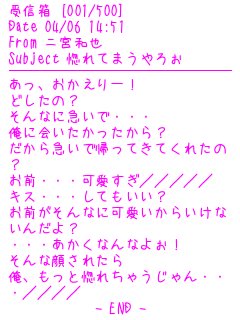 受信箱 [001/500]
Date 04/06 14:51
From 二宮和也
Subject 惚れてまうやろぉ
あっ、おかえりー！
どしたの？
そんなに急いで・・・
俺に会いたかったから？
だから急いで帰ってきてくれたの
？
お前・・・可愛すぎ/////
キス・・・してもいい？
お前がそんなに可愛いからいけな
いんだよ？
・・・あかくなんなよぉ！
そんな顔されたら
俺、もっと惚れちゃうじゃん・・
・////
- END -